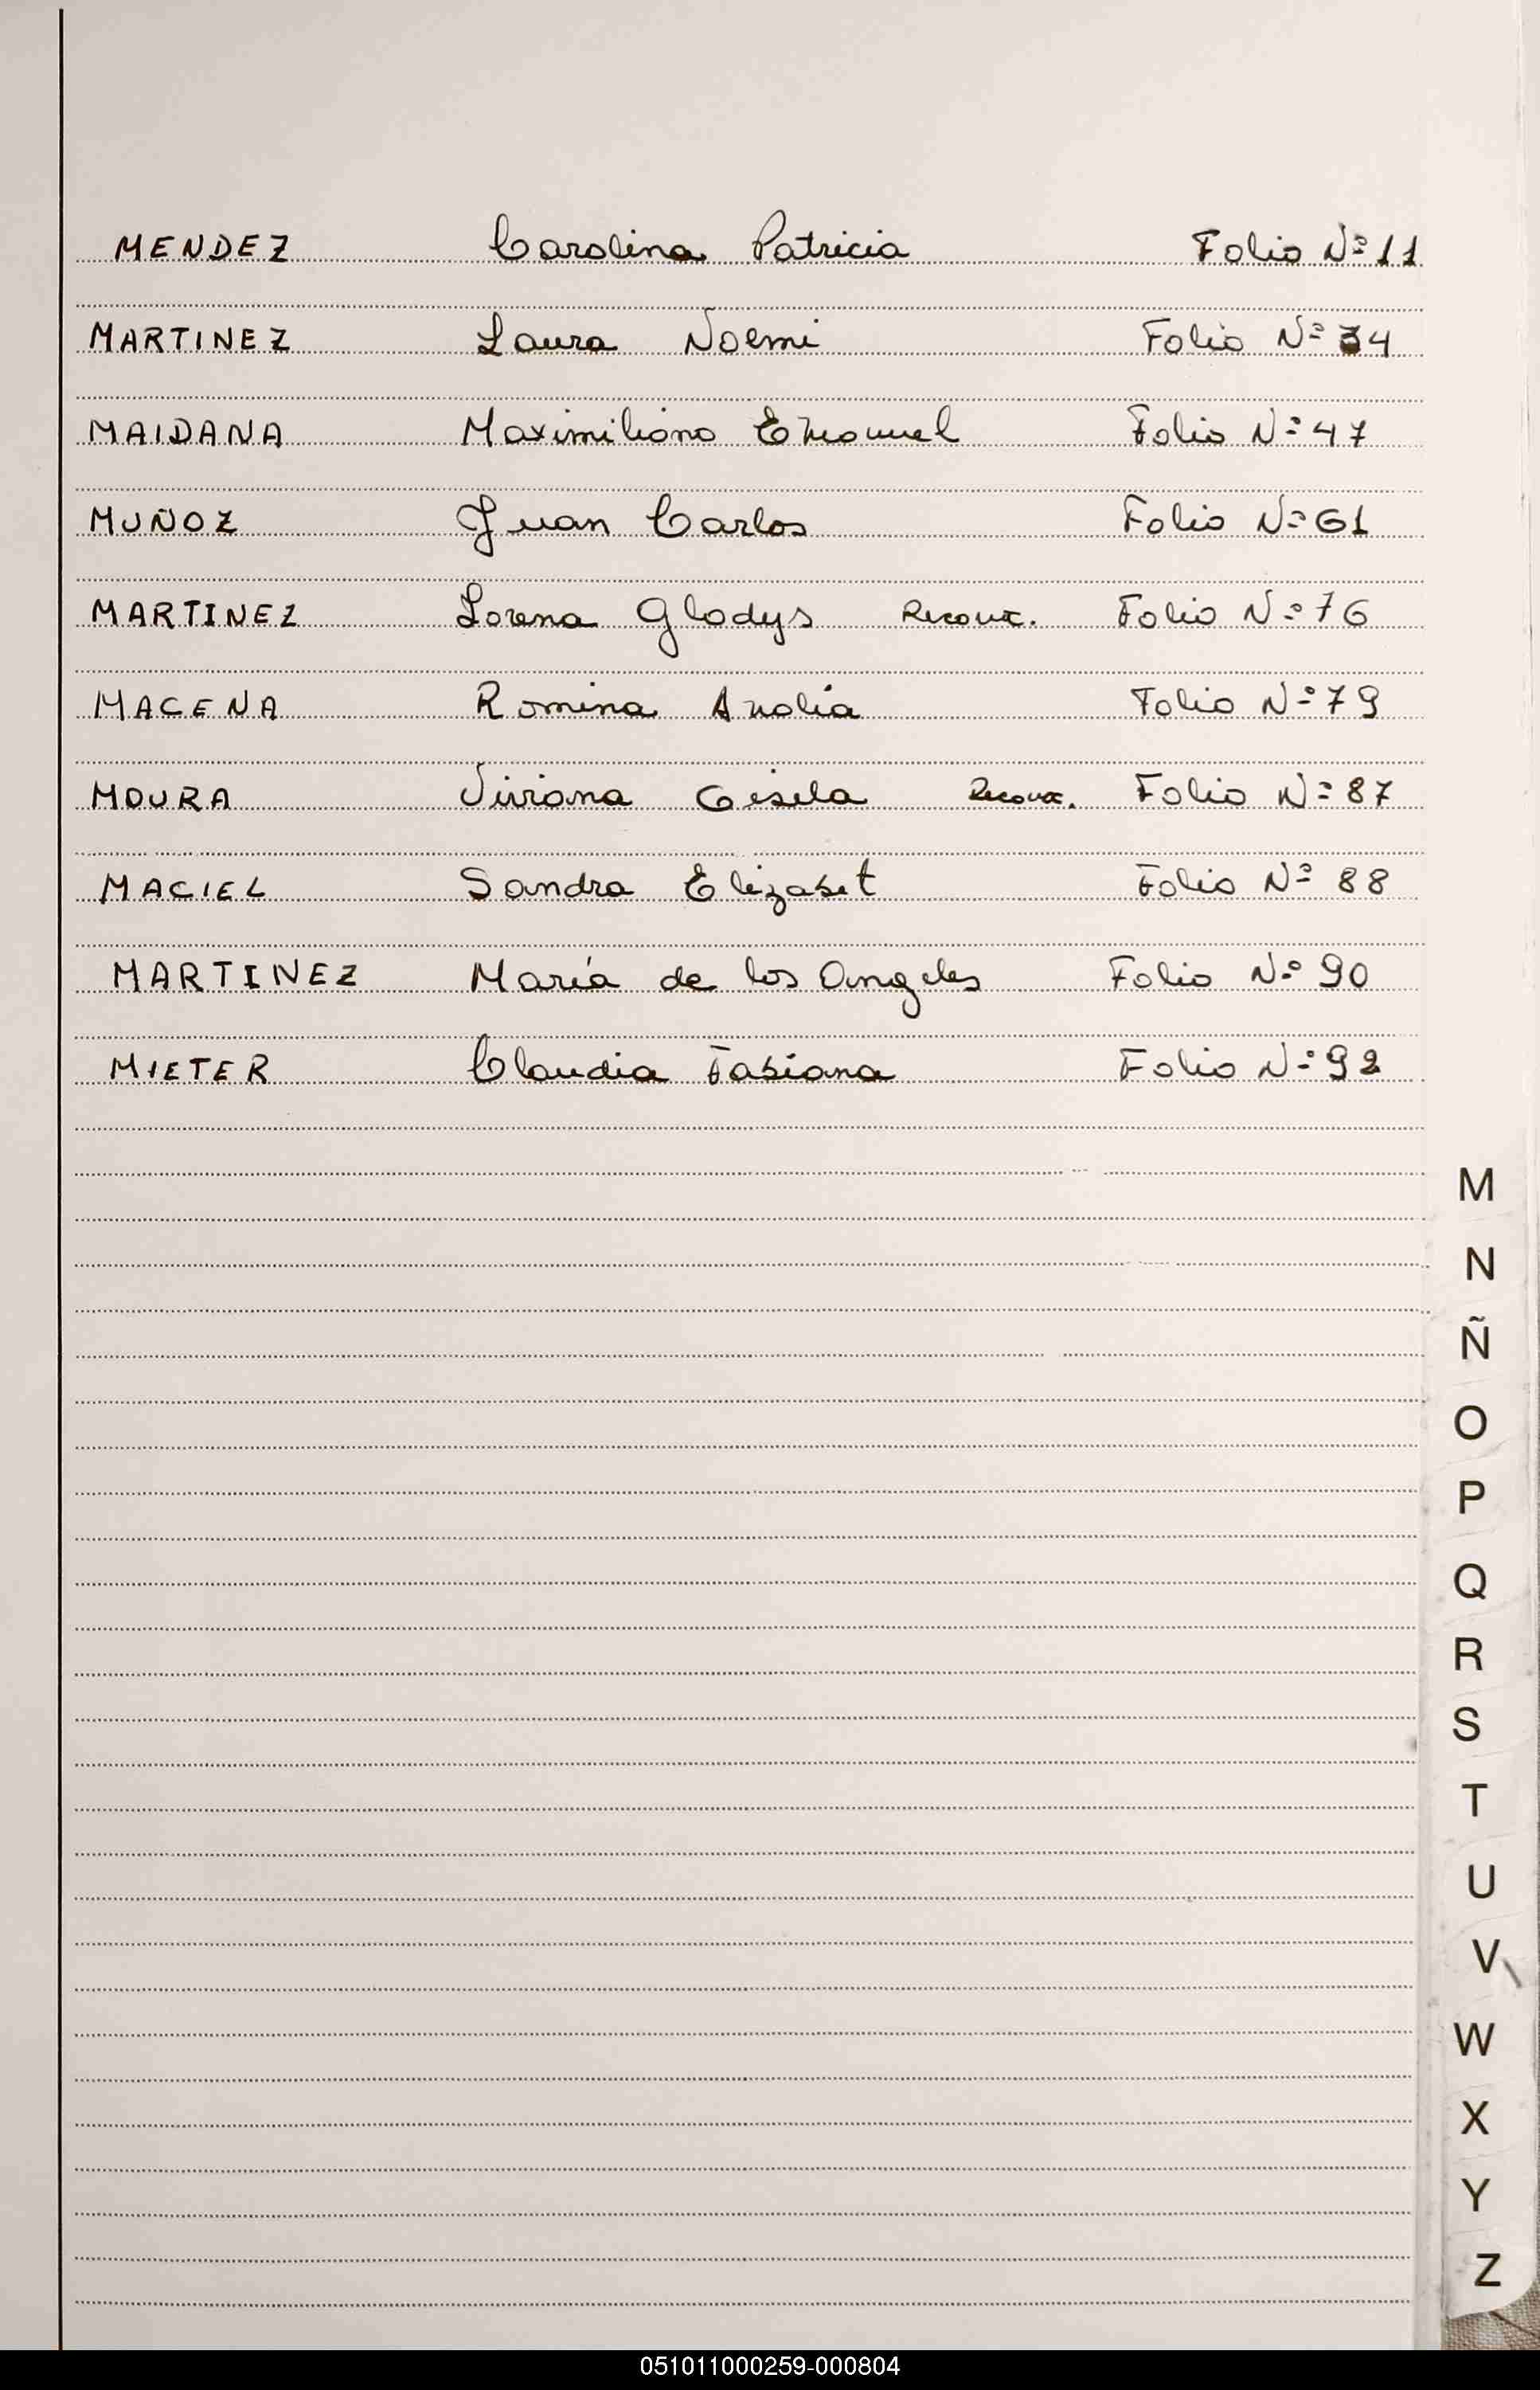 MENDEZ Carolina Patricia Folio Nº 11
MARTINEZ Laura Noemi Folio Nº 34
MAIDANA Maximiliano Emanuel Folio Nº 47
MUÑOZ Juan Carlos Folio Nº 61
MARTINEZ Lorena Gladys Folio Nº 76
MACENA Romina Analia Folio Nº 79
MOURA Viviana Gisela Folio Nº 87
MACIEL Sandra Elizabet Folio Nº 88
MARTINEZ María de los Angeles Folio Nº 90
MIETER Claudia Fabiana Folio Nº 92
M
N
Ñ
O
P
Q
R
S
T
U
V
W
X
Y
Z
051011000259-000804